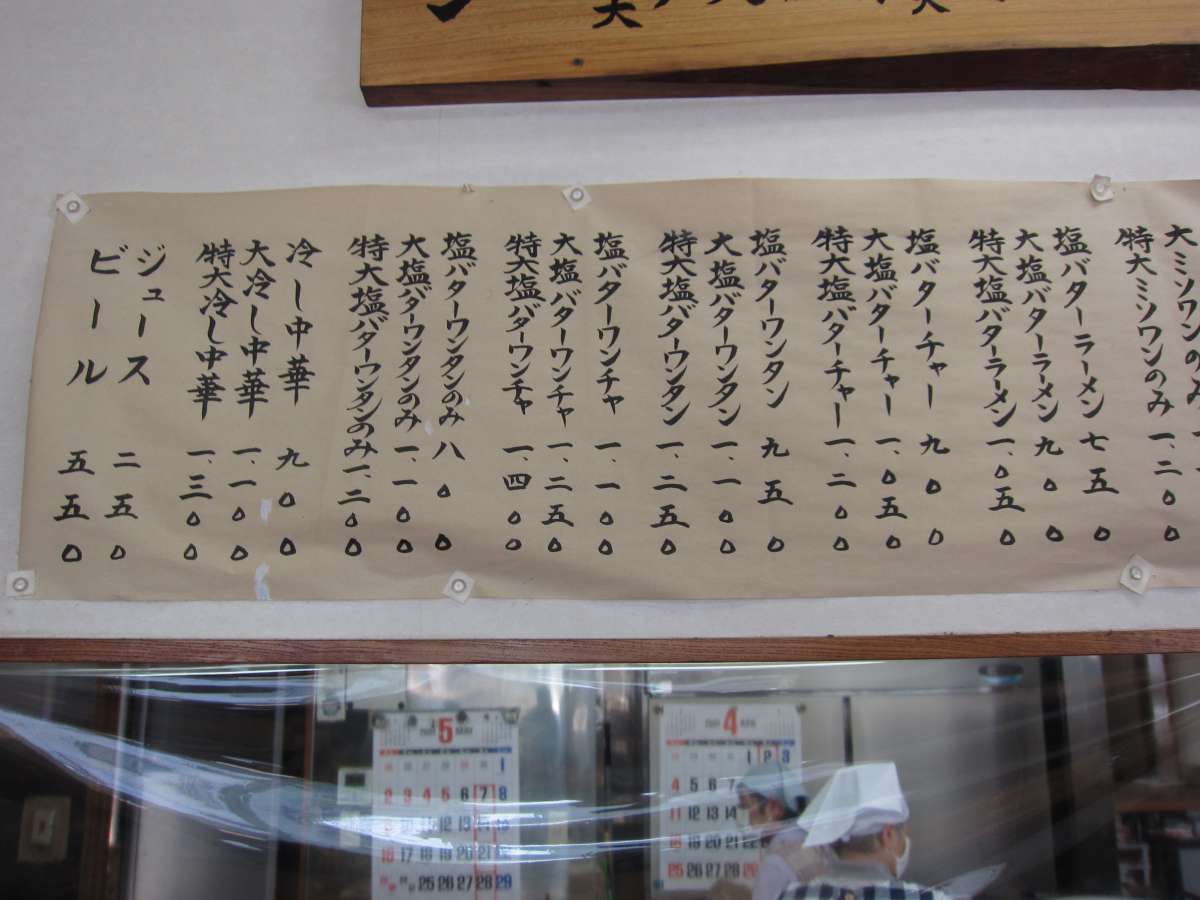 大ミソワンのみ
特大ミソワンのみ 一、二00
塩バターラーメン 七五0
大塩バターラーメン 九00
特大塩バターラーメン 一、0五0
塩バターチャー 九00
大塩バターチャー 一、0五0
特大塩バターチャー 一、二00
塩バターワンタン 九五0
大塩バターワンタン 一、一00
特大塩バターワンタン 一、二五0
塩バターワンチャ 一、一00
大塩バターワンチャ 一、二五0
特大塩バターワンチャ 一、四00
塩バターワンタンのみ 八00
大塩バターワンタンのみ 一、一00
特大塩バターワンタンのみ 一、二00
冷し中華 九00
大冷し中華 一、一00
特大冷し中華 一、三00
ジュース 二五0
ビール 五五0
5
1
2 3 4 5 6 7 8
16 17 18 19 20 21 22
25 26 27 28 29
4
1 2 3
4 5 6 7
11 12 13 14
18 19 20 21 22
25 26 27 28